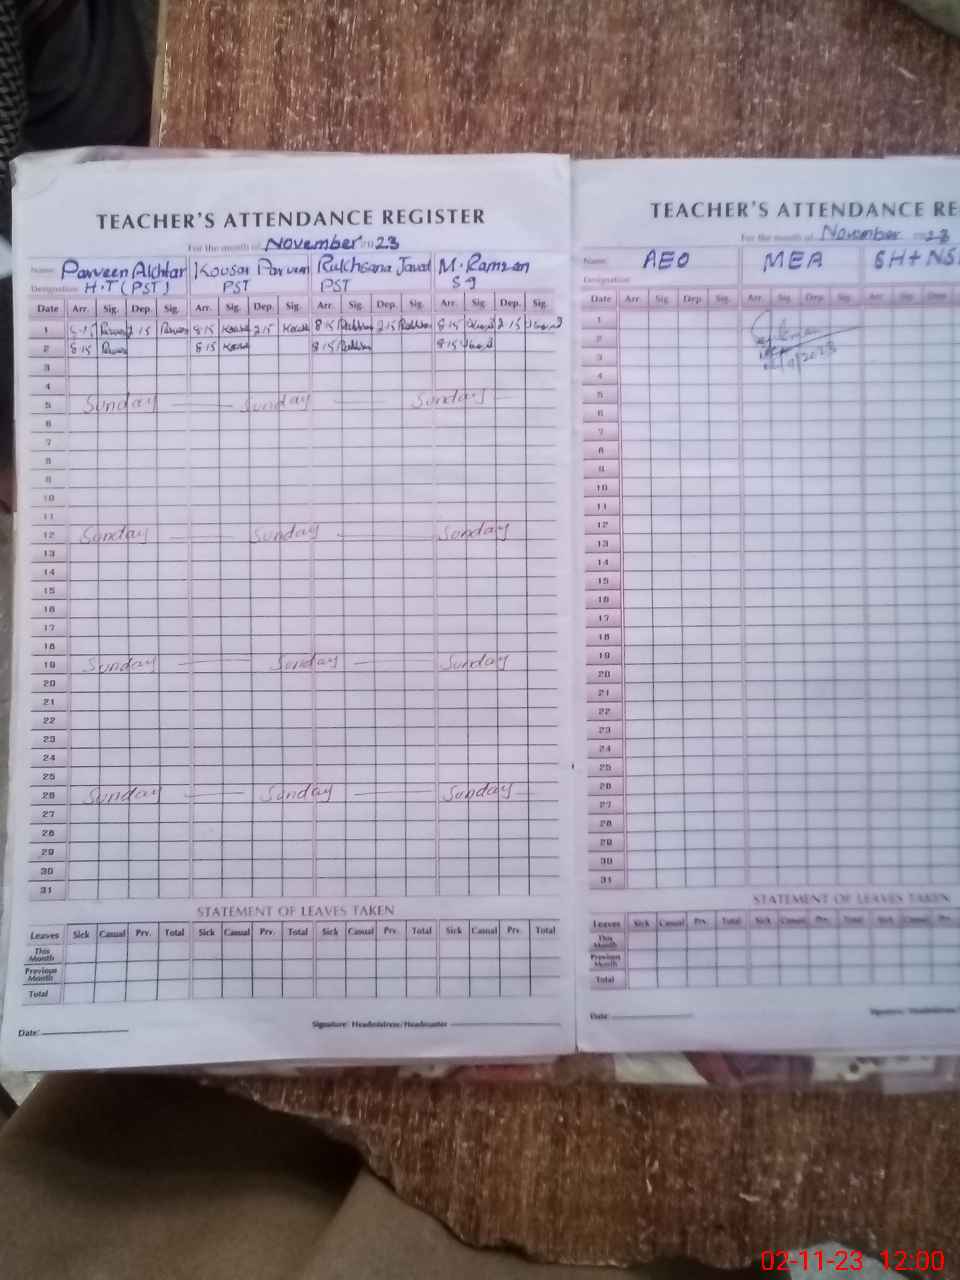 TEACHER'S ATTENDANCE REGISTER
For the month of November 2023
Name Parveen Akhtar Kousar Parveen Rukhsana Javed M. Ramzan
Designation H.T (PST) PST PST
Date Arr. Sig. Dep. Sig. Arr. Sig. Dep. Sig. Arr. Sig. Dep. Sig. Arr. Sig. Dep. Sig.
1 2 15 8 15 2 15 8 15 2 15 8 15 2 15
2 8 15 8 15 8 15 8 15
3
4
5 Sunday Sunday Sunday
6
7
8
9
10
11
12 Sunday Sunday Sunday
13
14
15
16
17
18
19 Sunday Sunday Sunday
20
21
22
23
24
25
26 Sunday Sunday Sunday
27
28
29
30
31
STATEMENT OF LEAVES TAKEN
Leaves Sick Casual Prv. Total Sick Casual Prv. Total Sick Casual Prv. Total Sick Casual Prv. Total
This Month
Previous Month
Total
Date: Signature: Headmistress/Headmaster
TEACHER'S ATTENDANCE RE
For the month of November 23
Name: AEO MEA
Designation
Date Arr. Sig. Dep. Sig. Arr. Sig. Dep. Sig. Arr. Sig. Dep.
1
2
3
4
5
6
7
8
9
10
11
12
13
14
15
16
17
18
19
20
21
22
23
24
25
26
27
28
29
30
31
STATEMENT OF LEAVES TAKEN
Leaves Sick Casual Prv. Total Sick Casual Prv. Total Sick Casual Prv. Total
This Month
Previous Month
Total
Date:
02-11-23 12:00